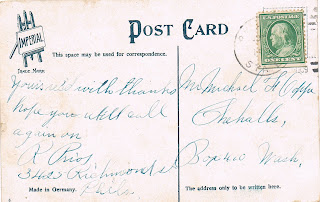 IMPERIAL
TRADE MARK
POST CARD
This space may be used for correspondence.
U.S. POSTAGE
ONE CENT
Yours rec'd with thanks
hope you will call
again on
R Prior
342 Richmond St
Phila
Mr. Michael H
Chehalis,
Box 410 Wash.
Made in Germany.
The address only to be written here.